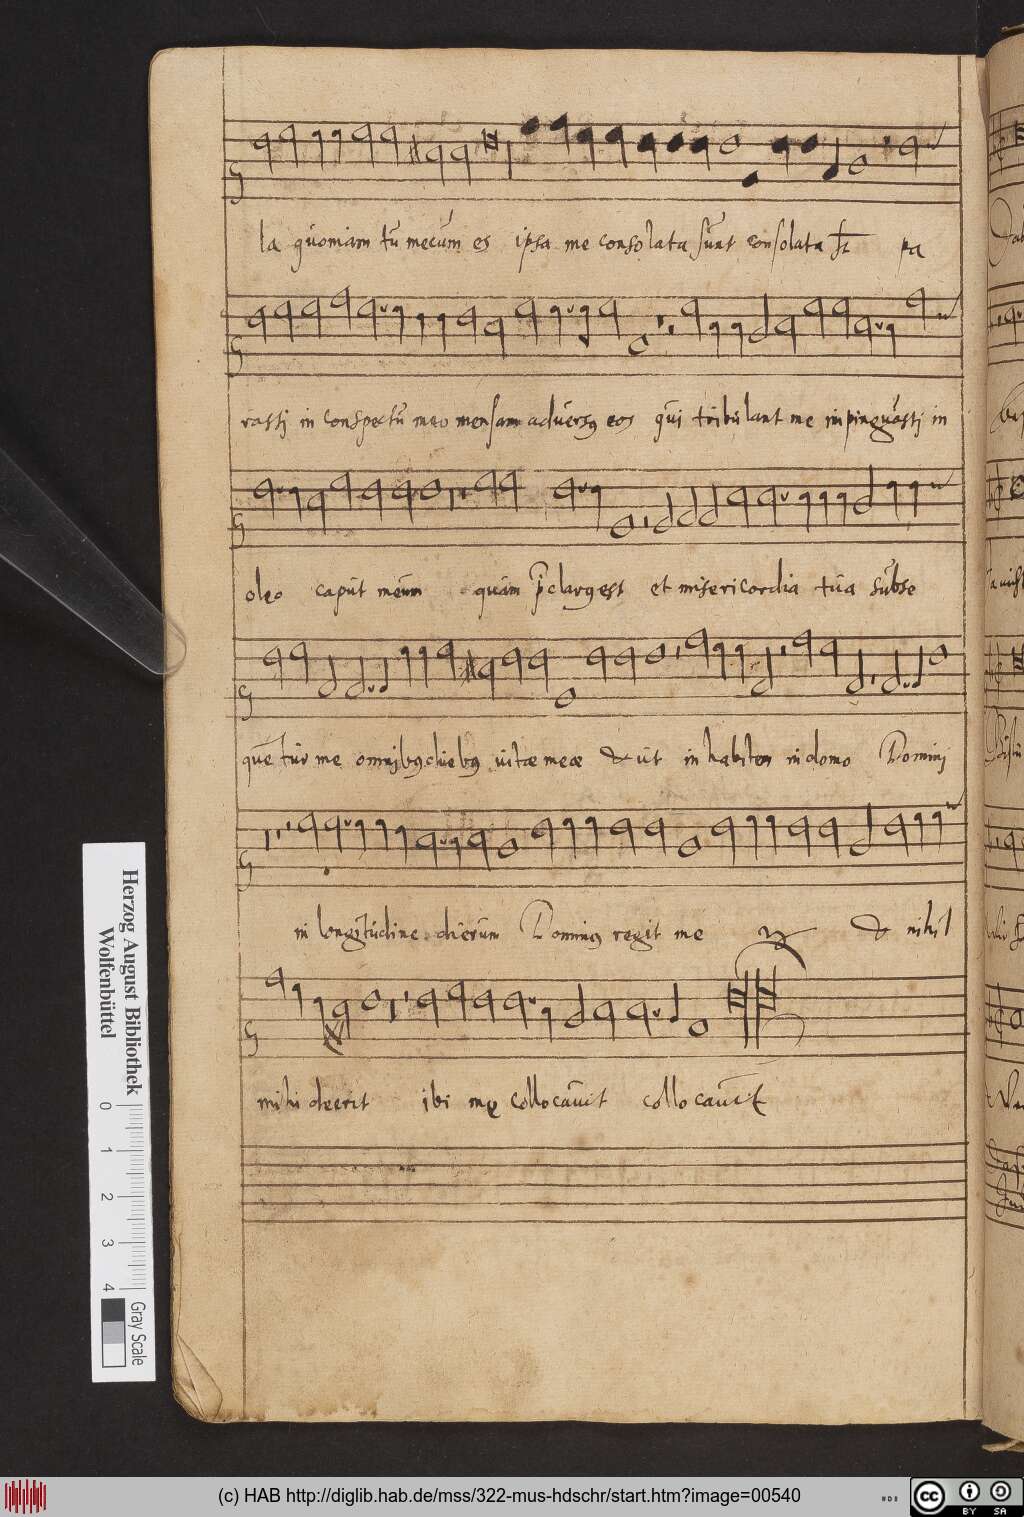 la quoniam tu mecum es ipsa me consolata sunt consolata st pa
rasti in conspectu meo mensam adversus eos qui tribulant me inpinguasti in
oleo caput meum quam p̄clarus est et misericordia tua subse
quentur me omnibus diebus uitæ meæ & ut inhabitem in domo Domini
in longitudine dierum Dominus regit me & nihil
mihi deerit ibi me collocauit collocauit
Herzog August Bibliothek
Wolfenbüttel
0 1 2 3 4
Gray Scale
(c) HAB http://diglib.hab.de/mss/322-mus-hdschr/start.htm?image=00540
CC BY SA